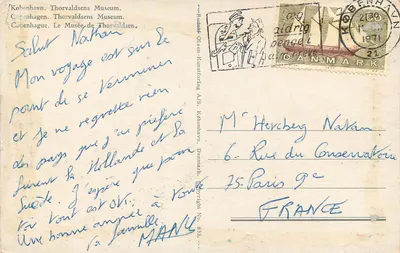 København. Thorvaldsens Museum.
Copenhagen. Thorvaldsens Museum.
Copenhague. Le Musée de Thorvaldsen.
Salut Nathan
Mon voyage est sur le
point de se terminer
et je ne regrette rien
des pays que j'ai préféré
furent la Hollande et la
Suède. J'espère que pour
toi tout est OK.
Une bonne année à toute
la famille.
MANU
KØBENHAVN
1971
DANMARK
Mr Hercberg Natan
6. Rue du Conservatoire
75. Paris 9e
FRANCE